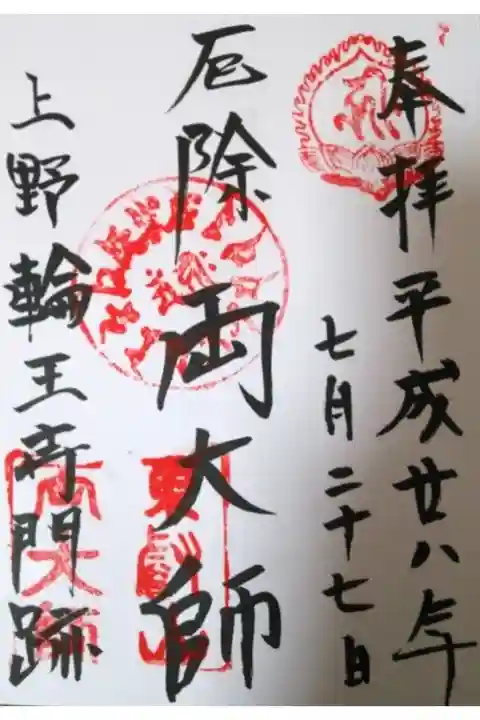 奉拝平成廿八年
七月二十七日
厄除両大師
上野輪王寺門跡
両大師